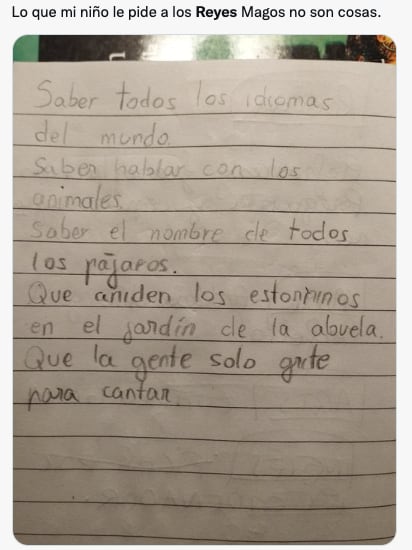 Lo que mi niño le pide a los Reyes Magos no son cosas.
Saber todos los idiomas
del mundo.
Saber hablar con los
animales.
Saber el nombre de todos
los pájaros.
Que aniden los estorninos
en el jardín de la abuela.
Que la gente solo grite
para cantar